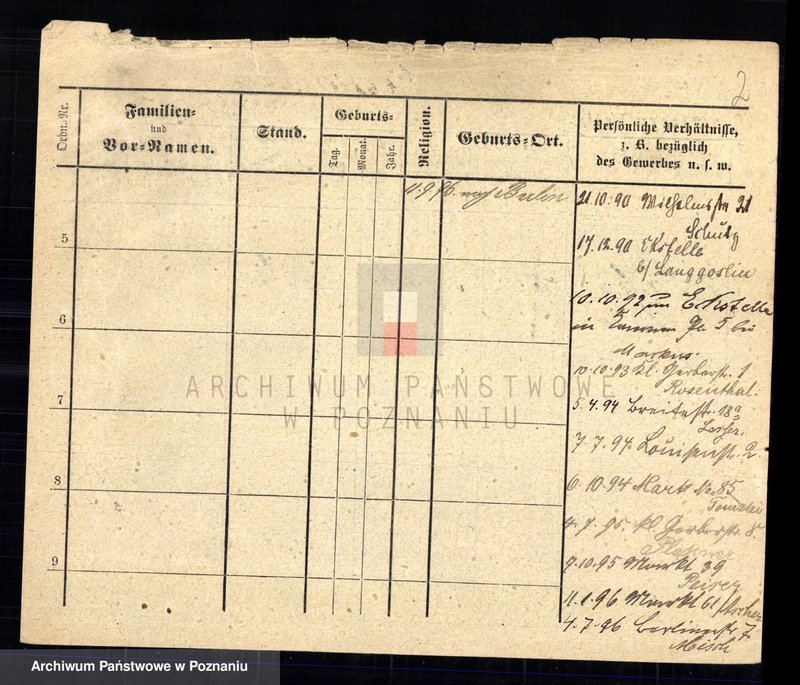 2
Ordn.-Nr.
Familien-
und
Vor-Namen.
Stand.
Geburts-
Tag.
Monat.
Jahr.
Religion.
Geburts-Ort.
Persönliche Verhältnisse,
z. B. bezüglich
des Gewerbes u. s. w.
11.9.96. nach Berlin
21.10.90 Wilhelmstr 21
Schulz
17.12.90 Ekstelle
b/ Langgoslin
5
10.10.92 Eckstelle
in Pl. 5 bei
Markus.
6
10.10.93 Kl. Gerberstr. 1
Rosenthal.
5.4.94 Breitestr. 18a
Lesser.
7
7.7.94 Louisenstr. 2.
6.10.94 Markt No. 85
8
4.7.95. Kl. Gerberstr. 8.
9.10.95 Markt 39
Peiser
9
11.1.96 Markt 61/ Ascher
4.7.96 Berlinerstr. 7
Misch
ARCHIWUM PAŃSTWOWE
W POZNANIU
Archiwum Państwowe w Poznaniu